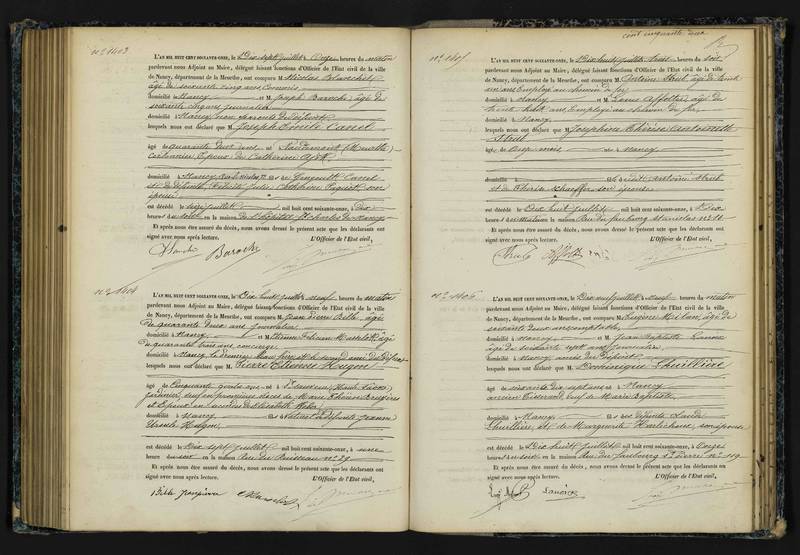 nº 1403
L'AN MIL HUIT CENT SOIXANTE-ONZE, le Dix sept juillet à Onze heures du matin
pardevant nous Adjoint au Maire, délégué faisant fonctions d'Officier de l'État civil de la ville
de Nancy, département de la Meurthe, ont comparu M. Nicolas
âgé de soixante cinq ans Commis
domicilié à Nancy et M. Joseph Baroche âgé de
soixante cinq ans journalier
domicilié à Nancy non parents du défunt
lesquels nous ont déclaré que M. Joseph Emile Canel
âgé de quarante deux ans né à (Meurthe)
Epoux de Catherine
domicilié à Nancy, Rue St Nicolas, 77 fils de Canel
et de défunte Julie Catherine son
épouse
est décédé le seize juillet mil huit cent soixante-onze, à Dix
heures du soir en la maison de l'hôpital St Charles de Nancy
Et après nous être assuré du décès, nous avons dressé le présent acte que les déclarants ont
signé avec nous après lecture. L'Officier de l'État civil,
Baroche
nº 1404
L'AN MIL HUIT CENT SOIXANTE-ONZE, le Dix huit juillet à neuf heures du matin
pardevant nous Adjoint au Maire, délégué faisant fonctions d'Officier de l'État civil de la ville
de Nancy, département de la Meurthe, ont comparu M. Jean Pierre âgé
de quarante deux ans Journalier
domicilié à Nancy et M. Etienne âgé
de quarante trois ans concierge
domicilié à Nancy le premier Beau frère et le second ami du défunt
lesquels nous ont déclaré que M. Pierre Etienne Hugon
âgé de Cinquante quatre ans né à
jardinier, veuf en premières noces de Marie
et Epoux en secondes d'Elisabeth Weber
domicilié à Nancy fils naturel de défunte Jeanne
Ursule Hugon
est décédé le Dix sept juillet mil huit cent soixante-onze, à une
heure du soir en la maison Rue du Ruisseau nº 29
Et après nous être assuré du décès, nous avons dressé le présent acte que les déclarants ont
signé avec nous après lecture. L'Officier de l'État civil,
cent cinquante deux
nº 1405
L'AN MIL HUIT CENT SOIXANTE-ONZE, le Dix huit juillet à trois heures du soir
pardevant nous Adjoint au Maire, délégué faisant fonctions d'Officier de l'État civil de la ville
de Nancy, département de la Meurthe, ont comparu M. Antoine Strub, âgé de trente
un ans Employé au chemin de fer
domicilié à Nancy et M. Louis Affolter âgé de
trente huit ans, Employé au chemin de fer,
domicilié à Nancy
lesquels nous ont déclaré que M. Joséphine Thérèse Antoinette
Strub
âgée de Onze mois née à Nancy
domicilié à fille d'Antoine Strub
et de Thérèse Schaeffer son épouse
est décédé le Dix huit juillet mil huit cent soixante-onze, à Dix
heures du matin en la maison Rue du faubourg Stanislas nº 18
Et après nous être assuré du décès, nous avons dressé le présent acte que les déclarants ont
signé avec nous après lecture. L'Officier de l'État civil,
Strub Affolter
nº 1406
L'AN MIL HUIT CENT SOIXANTE-ONZE, le Dix neuf juillet à neuf heures du matin
pardevant nous Adjoint au Maire, délégué faisant fonctions d'Officier de l'État civil de la ville
de Nancy, département de la Meurthe, ont comparu M. Eugène âgé de
soixante deux ans comptable
domicilié à Nancy et M. Jean Baptiste
âgé de soixante sept ans
domicilié à Nancy amis du défunt
lesquels nous ont déclaré que M. Dominique Thuillière
âgé de soixante dix sept ans né à Nancy
ancien Tisserand, veuf de Marie Baptiste
domicilié à Nancy fils des défunts Claude
Thuillière, et de Marguerite son épouse
est décédé le Dix huit juillet mil huit cent soixante-onze, à Onze
heures du soir en la maison Rue du faubourg St Pierre nº 119
Et après nous être assuré du décès, nous avons dressé le présent acte que les déclarants ont
signé avec nous après lecture. L'Officier de l'État civil,